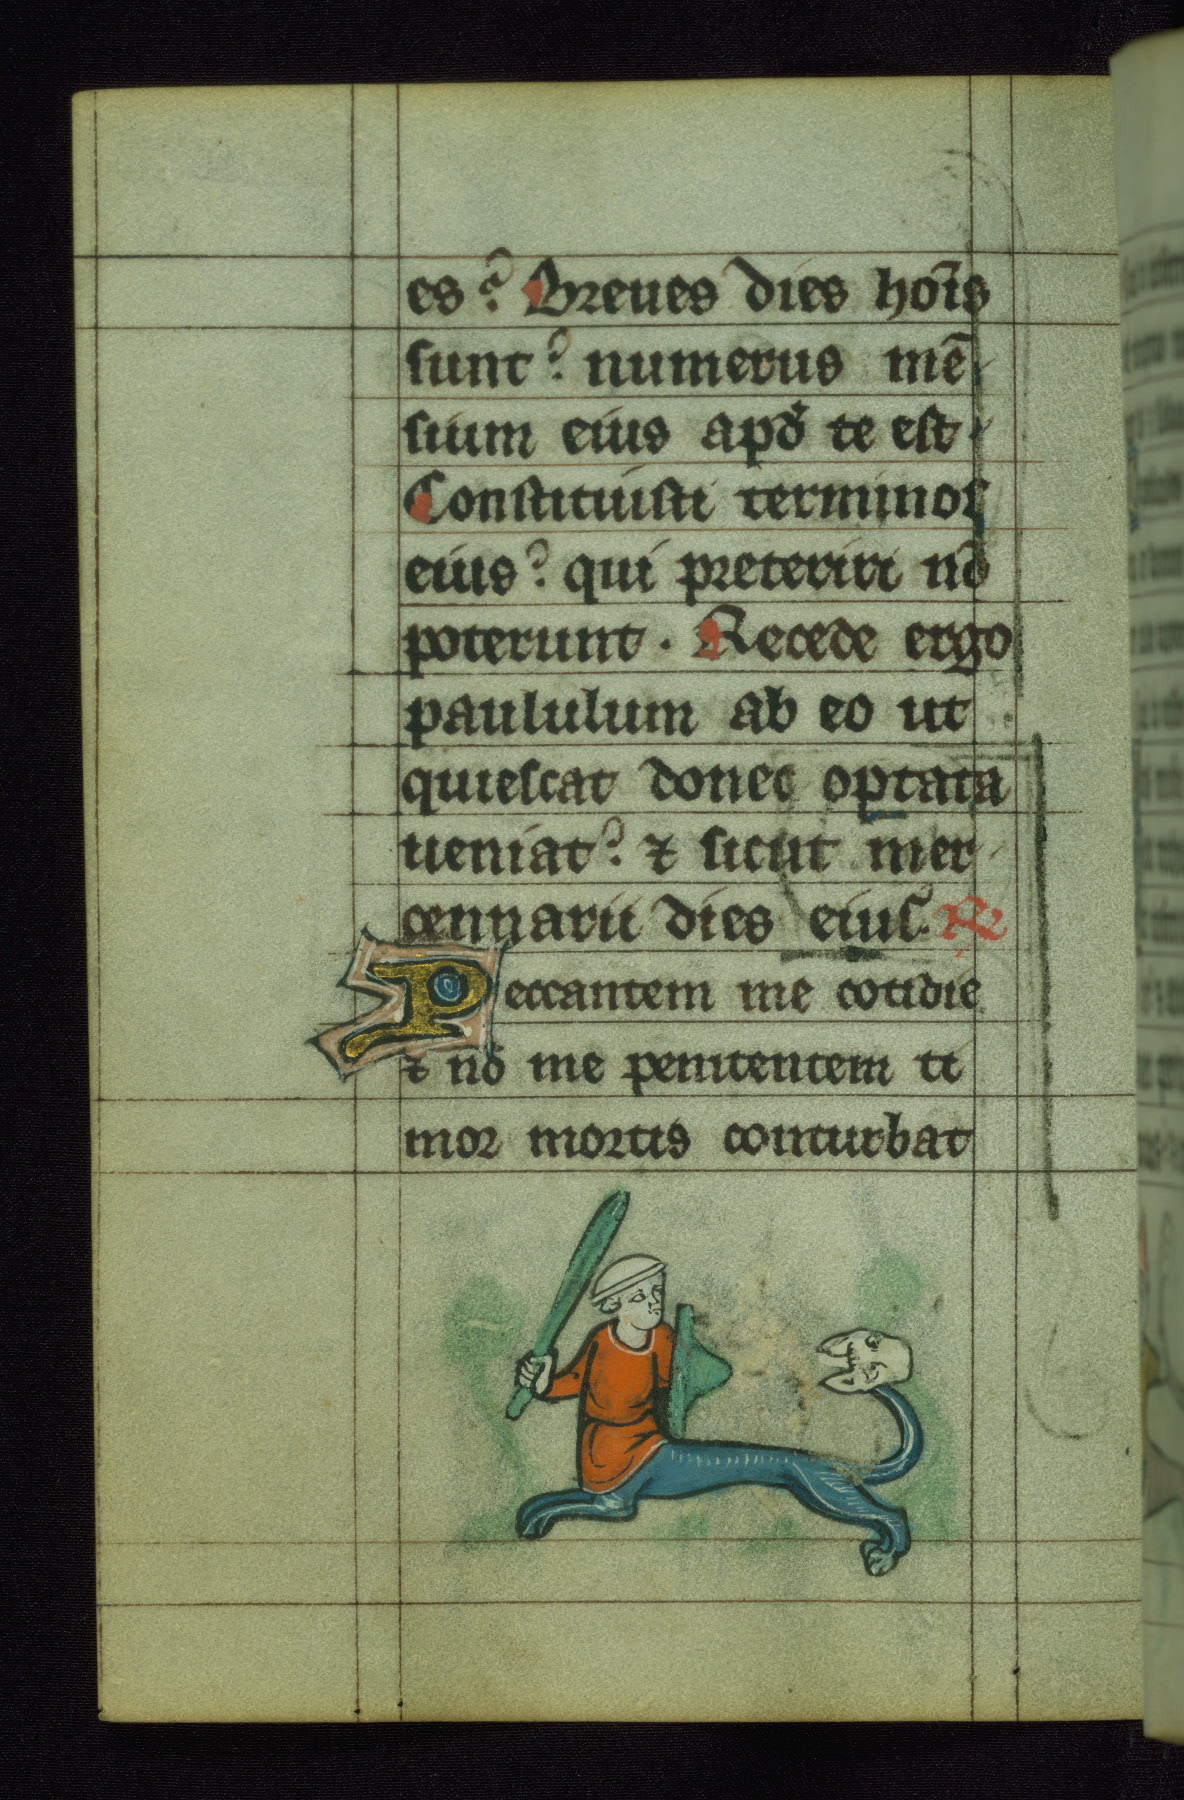 es? Breues dies hoīs
sunt? numerus mē
sium eius apd' te est
Constituisti terminos
eius? qui preteriri nō
poterunt. Recede ergo
paululum ab eo ut
quiescat donec optata
ueniat? ⁊ sicut mer
cennarii dies eius. R
Peccantem me cotidie
⁊ nō me penitentem ti
mor mortis conturbat